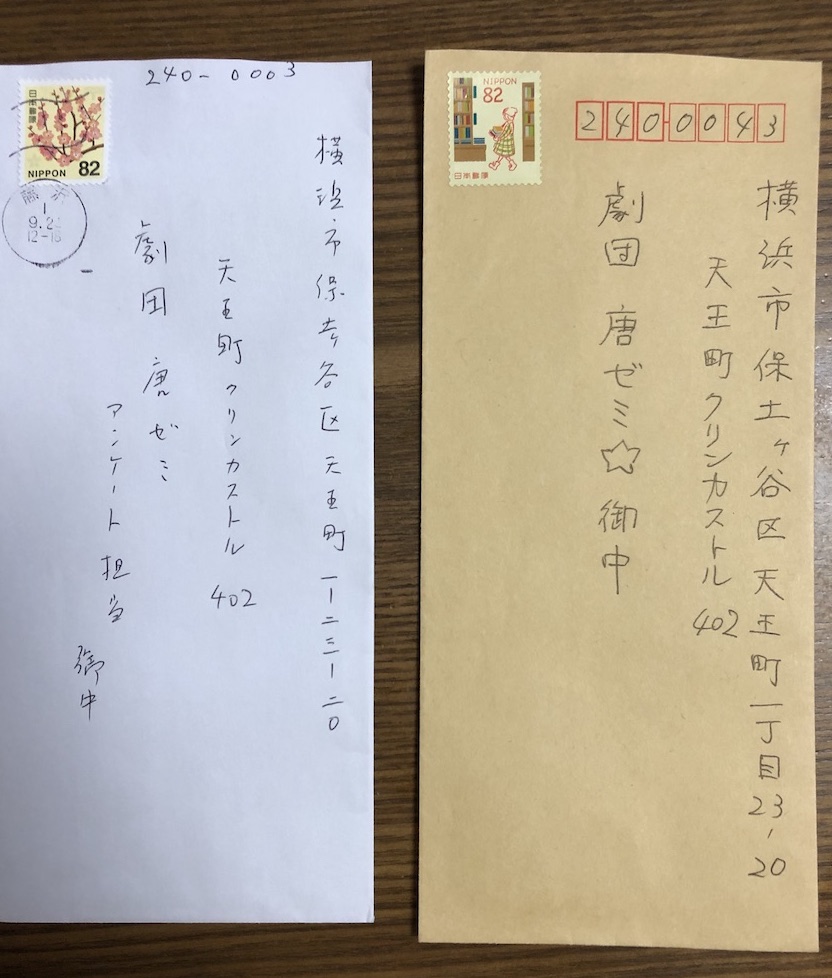 240-0003
日本郵便
NIPPON 82
9.2
12-18
横浜市保土谷区天王町一ー二三ー二〇
天王町クリンカストル 402
劇団 唐ゼミ
アンケート担当 御中
NIPPON
82
日本郵便
2400043
横浜市保土ヶ谷区天王町一丁目23-20
天王町クリンカストル402
劇団 唐ゼミ☆御中